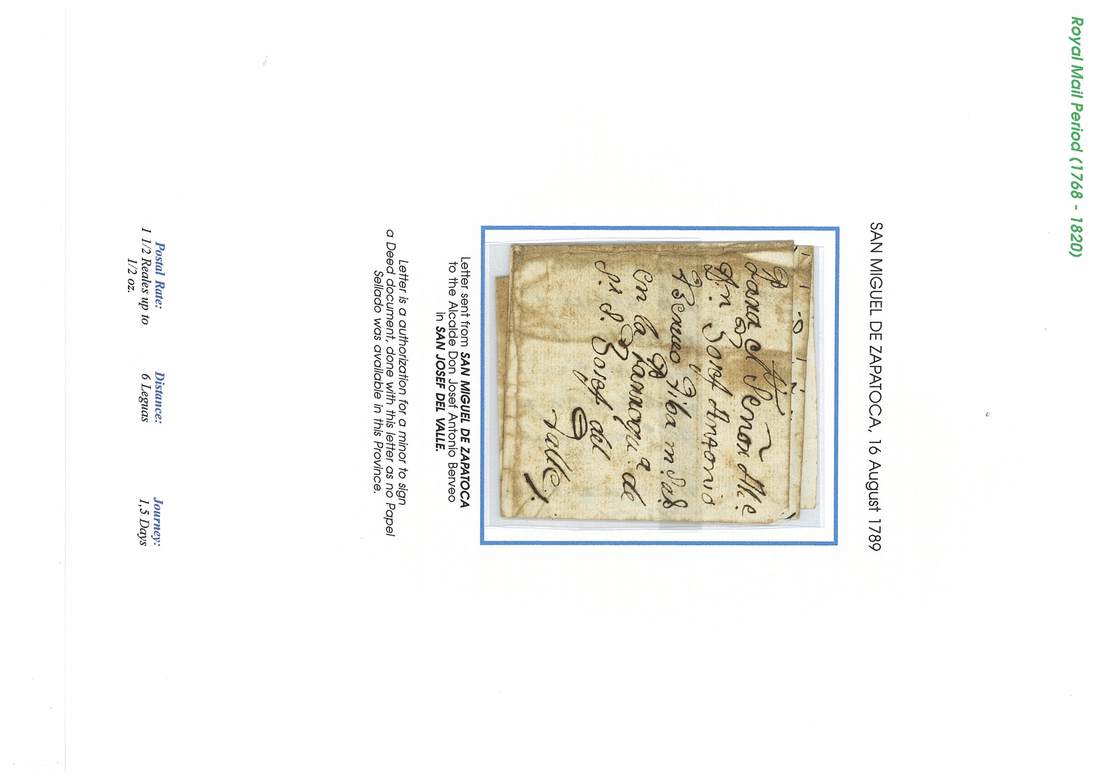 Royal Mail Period (1768 - 1820)
SAN MIGUEL DE ZAPATOCA, 16 August 1789
Para el Señor Alce
Dn Josef Antonio
en la Parroqu a de
Sn Josef del
Valle
Letter sent from SAN MIGUEL DE ZAPATOCA
to the Alcalde Don Josef Antonio Berveo
in SAN JOSEF DEL VALLE.
Letter is a authorization for a minor to sign
a Deed document, done with this letter as no Papel
Sellado was available in this Province.
Postal Rate:
1 1/2 Reales up to
1/2 oz.
Distance:
6 Leguas
Journey:
1,5 Days